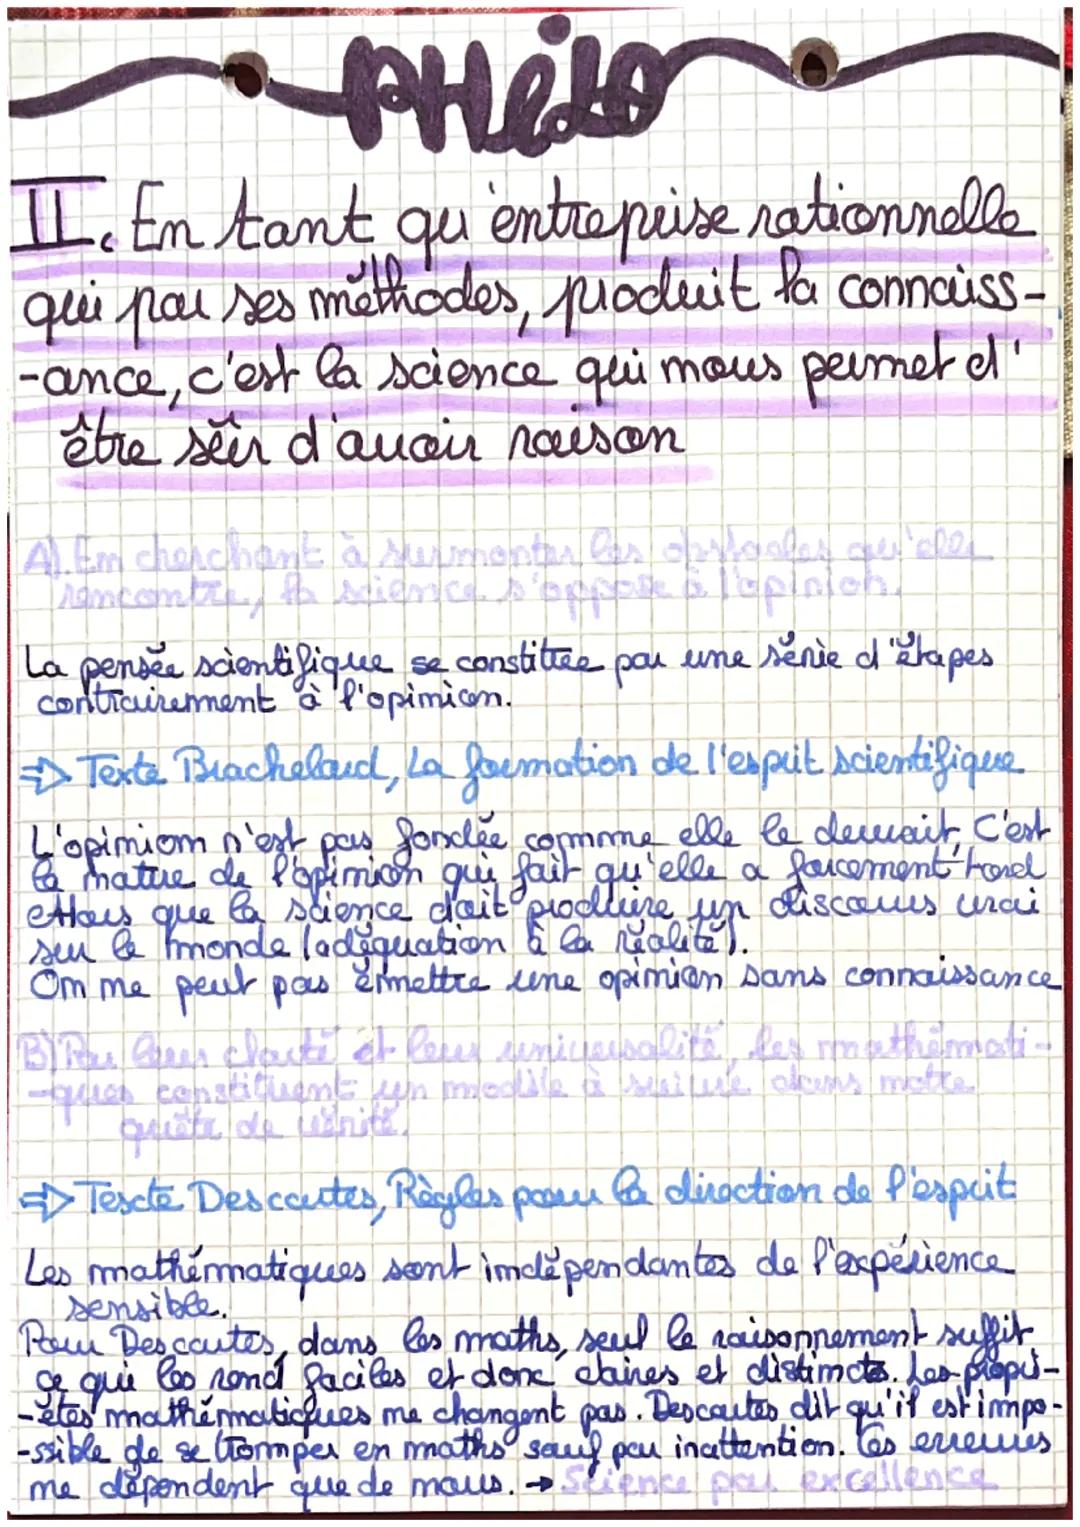 PHilo
II. En tant qu'entreprise rationnelle
qui par ses méthodes, produit la connaiss-
-ance, c'est la science qui nous permet d'
être sûr d'avoir raison
A). En cherchant à surmonter les obstacles qu'elle
rencontre, la science s'oppose à l'opinion.
La pensée scientifique se constitue par une série d'étapes
contrairement à l'opinion.
⇒ Texte Brachelard, La formation de l'esprit scientifique
L'opinion n'est pas fondée comme elle le devrait, C'est
la nature de l'opinion qui fait qu'elle a forcement tord
alors que la science doit produire un discours vrai
sur le monde (adéquation à la réalité).
On ne peut pas émettre une opinion sans connaissance
B) Par leur clarté et leur universalité, les mathémati-
-ques constituent un modèle à suivre dans notre
quête de vérité.
⇒ Texte Descartes, Règles pour la direction de l'esprit
Les mathématiques sont indépendantes de l'expérience
sensible.
Pour Descartes, dans les maths, seul le raisonnement suffit
ce qui les rend faciles et donc claires et distincts. Les propri-
-étés mathématiques ne changent pas. Descartes dit qu'il est impo-
-ssible de se tromper en maths sauf par inattention. Les erreurs
ne dépendent que de nous. → Science par excellence